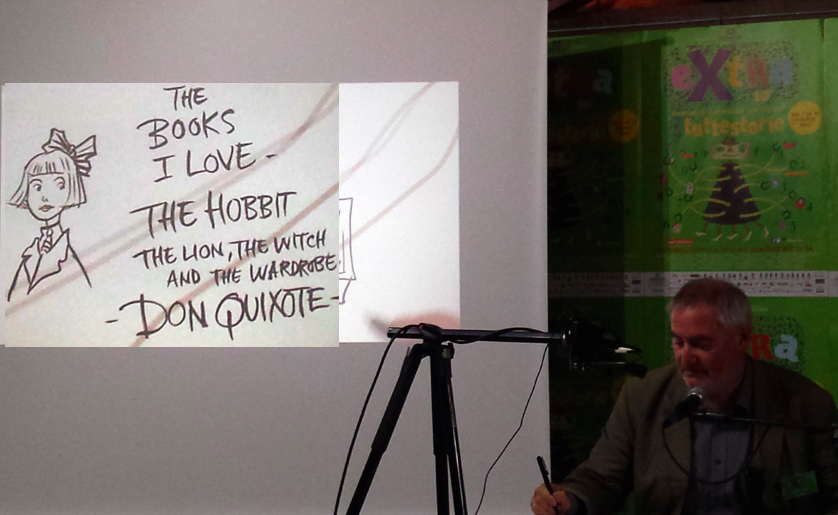 THE
BOOKS
I LOVE -
THE HOBBIT
THE LION, THE WITCH
AND THE WARDROBE
- DON QUIXOTE -
eXtRa
tuttestorie